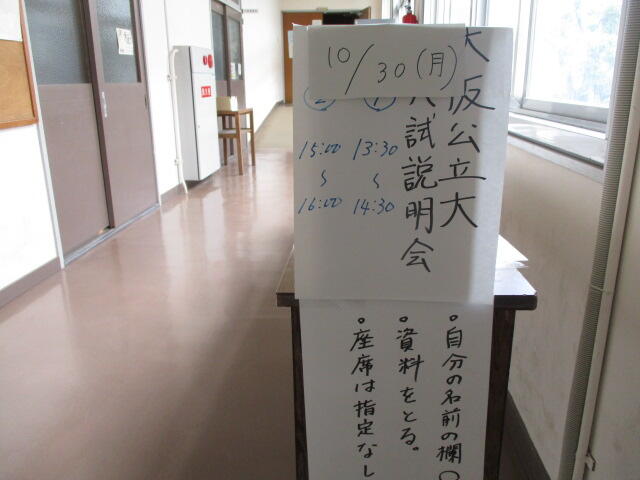 10/30(月)
大阪公立大
入試説明会
① 13:30~14:30
② 15:00~16:00
。自分の名前の欄○
。資料をとる。
。座席は指定なし